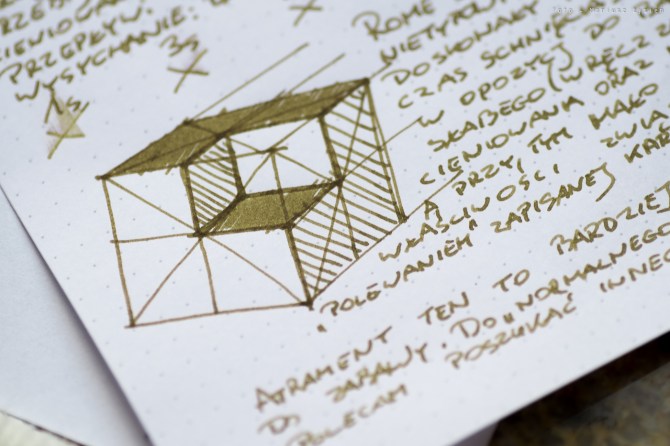 CIENIOWA
PRZEPŁYW:
WYSYCHANIE:
3s
1s
ROME
NIETYPOW
DOSKONAŁY
CZAS SCHNIĘCIA DO
W OPOZYCJI
SŁABEGO (WRĘCZ
CIENIOWANIA ORAZ
A PRZY TYM MAŁO
WŁAŚCIWOŚCI ZWIĄ
"POLEWANIEM" ZAPISANEJ KAR
ATRAMENT TEN TO BARDZIEJ
DO ZABAWY. DO "NORMALNEGO
POLECAM POSZUKAĆ INNEG